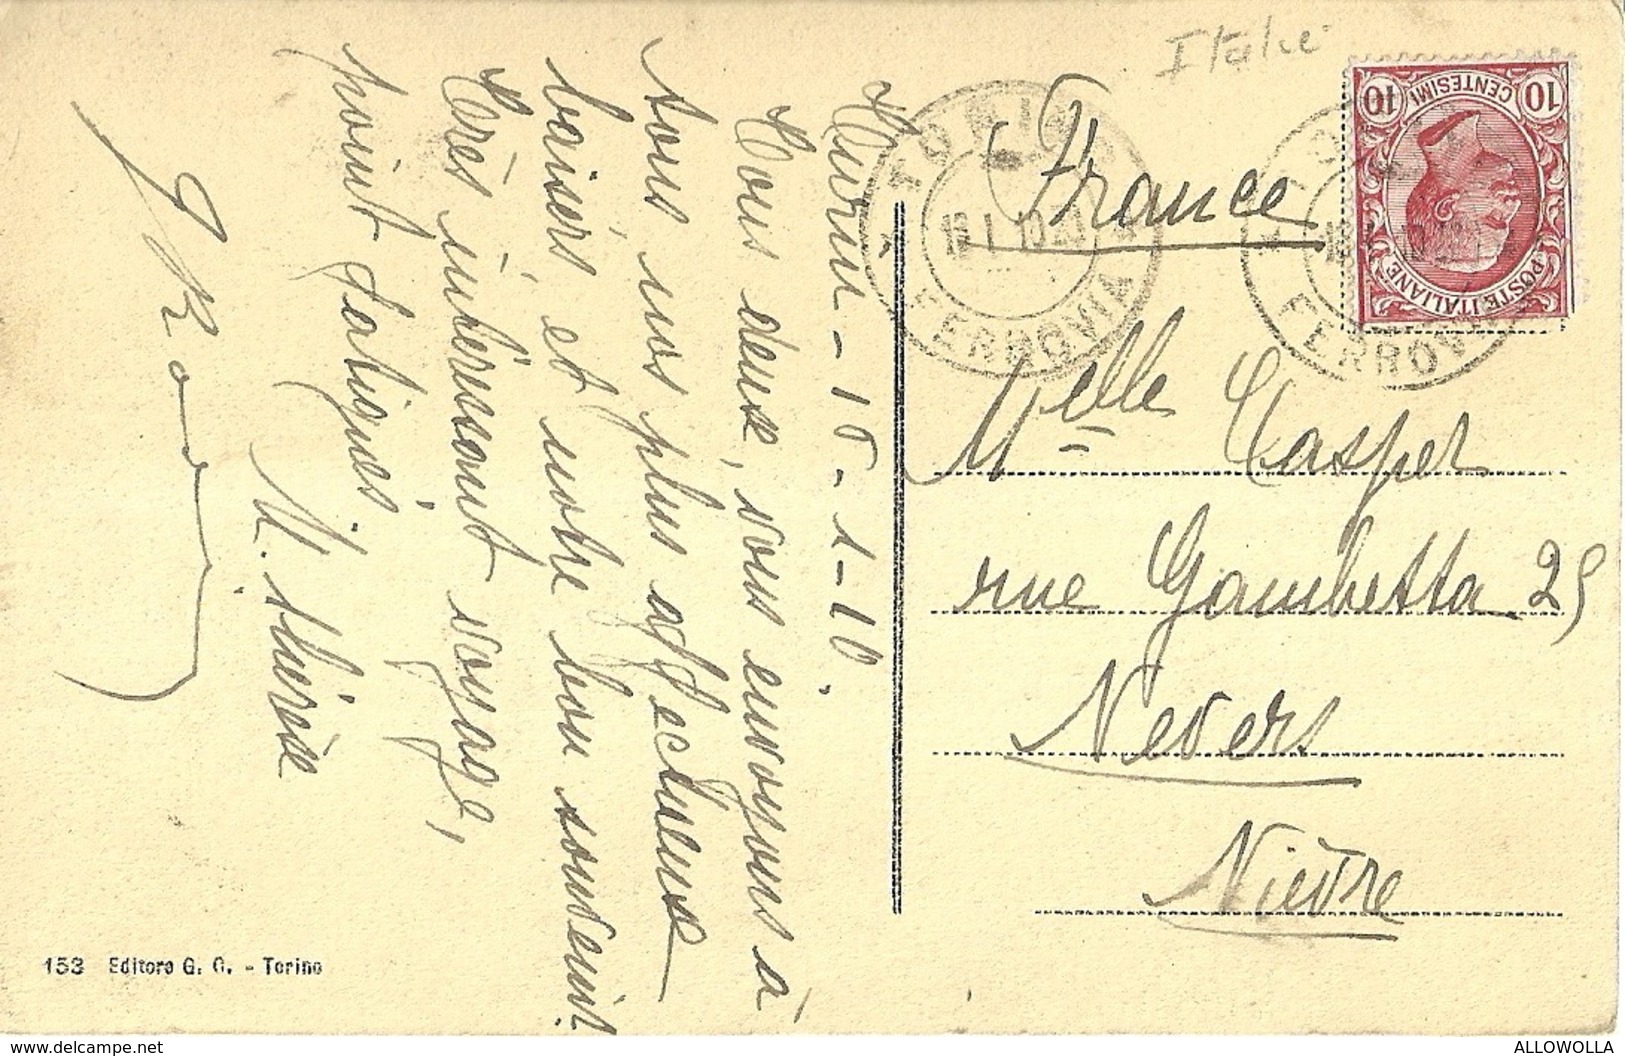 Italie
France
10 10
CENTESIMI
POSTE ITALIANE
TORINO
FERROVIA
FERROVIA
Turin - 16-1-10.
Tous deux, vous envoyons à
tous nos plus affectueux
baisers, et notre bon souvenir
Très intéressant voyage,
point fatigués.
M. Thérèse
Melle Casper
rue Gambetta 25
Nevers
Nièvre
153 Editore G. G. - Torino
www.delcampe.net
ALLOWOLLA